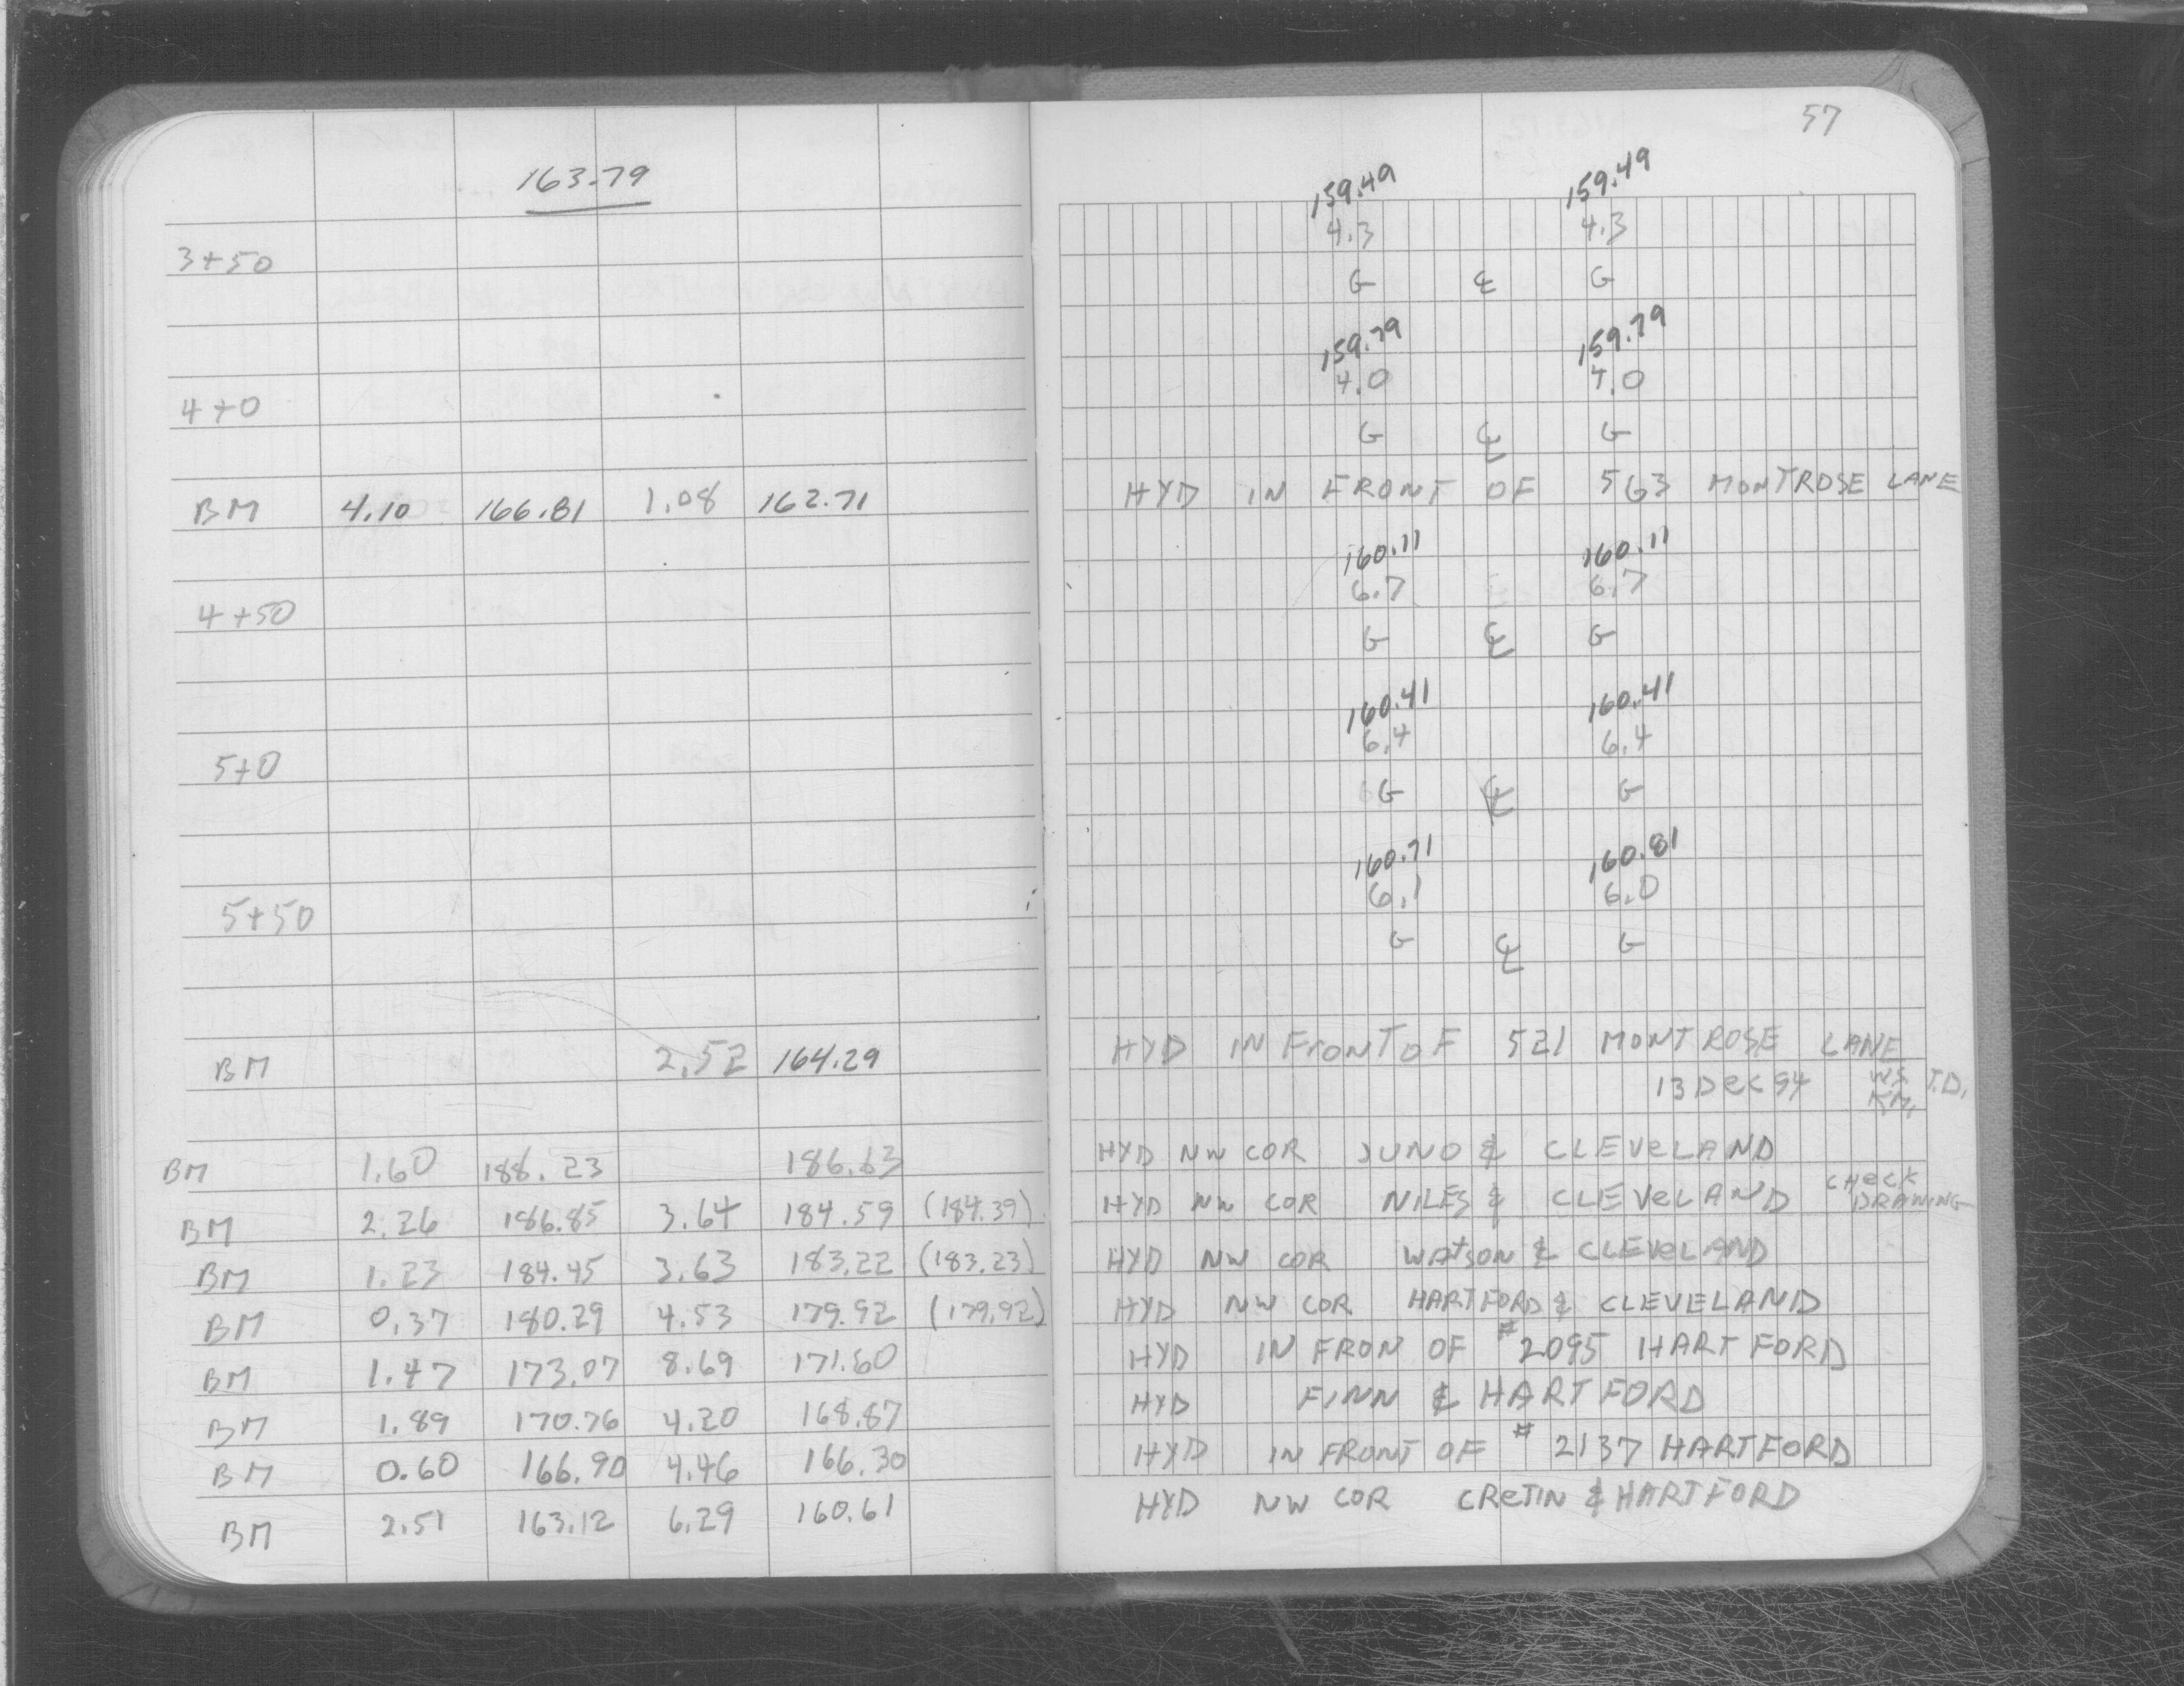 57
163.79 159.49 159.49
4.3 4.3
3+50
G ℄ G
159.79 159.79
4.0 4.0
4+0
G ℄ G
BM 4.10 166.81 1.08 162.71 HYD IN FRONT OF 563 MONTROSE LANE
160.11 160.11
4+50 6.7 6.7
G ℄ G
160.41 160.41
6.4 6.4
5+0
G ℄ G
160.71 160.81
5+50 6.1 6.0
G ℄ G
BM 2.52 164.29 HYD IN FronT OF 521 MONTROSE LANE
13 Dec 94 W.S. T.D.
K.M.
BM 1.60 188.23 186.63 HYD NW COR JUNO & CLEVeLAND
BM 2.26 186.85 3.64 184.59 (184.39) HYD NW COR NILES & CLEVeLAND CHeCK DRAWING
BM 1.23 184.45 3.63 183.22 (183.23) HYD NW COR WATSON & CLEVeLAND
BM 0.37 180.29 4.53 179.92 (179.92) HYD NW COR HARTFORD & CLEVELAND
BM 1.47 173.07 8.69 171.60 HYD IN FRON OF #2095 HARTFORD
BM 1.89 170.76 4.20 168.87 HYD FINN & HARTFORD
BM 0.60 166.90 4.46 166.30 HYD IN FRONT OF #2137 HARTFORD
BM 2.51 163.12 6.29 160.61 HYD NW COR CReTIN & HARTFORD